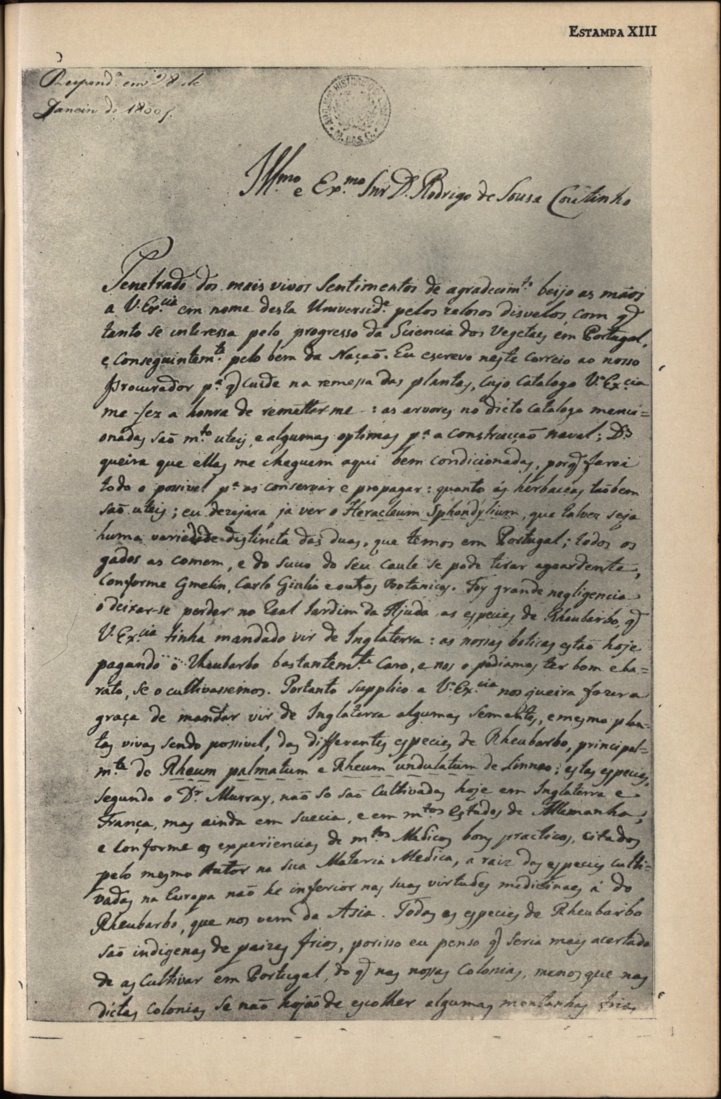 ESTAMPA XIII
Respand.º em 28 de
Janeiro de 180
Ill.mo e Ex.mo Snr D. Rodrigo de Sousa Coutinho
Penetrado dos mais vivos sentimentos de agradecim.to beijo as mãos
a V. Ex.cia em nome desta Universid.e pelos zelosos disvelos com q̃
tanto se interessa pelo progresso da Sciencia dos Vegetaes em Portugal,
e conseguintem.te pelo bem da Nação. Eu escrevo neste correio ao nosso
Procurador p.a q̃ cuide na remessa das plantas, cujo Catalogo V. Ex.cia
me fez a honra de remetter me : as arvores no dicto Catalogo menci-
onadas são m.to uteis, e algumas optimas p.a a construcção naval; D.s
queira que ellas me cheguem aqui bem condicionadas, porq̃ farei
todo o possivel p.a as conservar e propagar : quanto ás herbaceas tãobem
são uteis; eu dezejara já ver o Heracleum Sphondylium, que talvez seja
huma variedade distincta das duas, que temos em Portugal; todos os
gados as comem, e do suco do seu caule se pode tirar agoardente,
conforme Gmelin, Carlo Giulio e outros Botanicos. Foy grande negligencia
o deixar-se perder no Real Jardim da Ajuda as especies de Rheubarbo, q̃
V. Ex.cia tinha mandado vir de Inglaterra : as nossas boticas estão hoje
pagando o Rheubarbo bastantem.te caro, e nos o podiamos ter bom e ba-
rato, se o cultivassemos. Portanto supplico a V. Ex.cia nos queira fazer a
graça de mandar vir de Inglaterra algumas sementes, e mesmo plan-
tas vivas sendo possivel, das differentes especies de Rheubarbo, principal-
m.te do Rheum palmatum e Rheum undulatum de Linneo; estas especies,
segundo o D.r Murray, não so são cultivadas hoje em Inglaterra e
França, mas ainda em Suecia, e em m.tos Estados de Allemanha,
e conforme as experiencias de m.tos Medicos bons practicos, citados
pelo mesmo Autor na sua Materia Medica, a raiz das especies culti-
vadas na Europa não he inferior nas suas virtudes medicinaes á do
Rheubarbo, que nos vem da Asia. Todas as especies de Rheubarbo
são indigenas de paizes frios, porisso eu penso q̃ seria mais acertado
de as cultivar em Portugal, do q̃ nas nossas Colonias, menos que nas
dictas Colonias se não hajão de escolher algumas montanhas frias